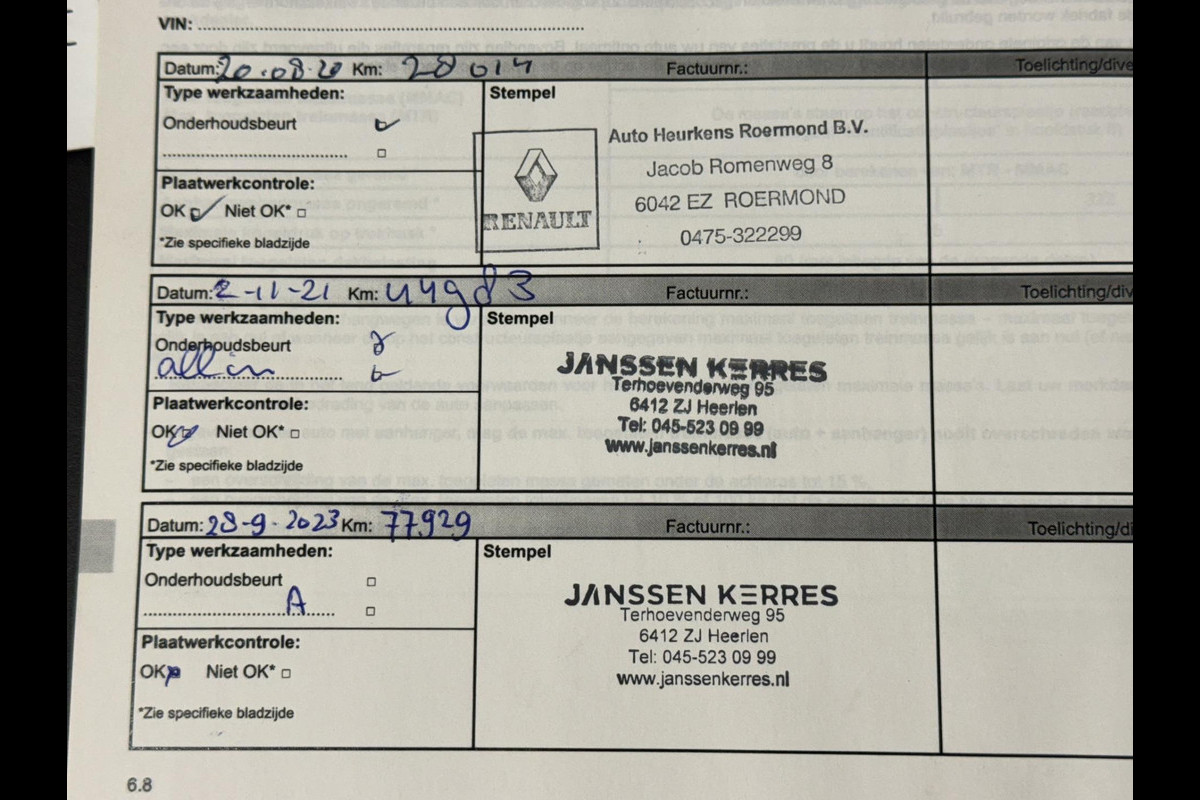 VIN:
Datum: 20.08.20 Km: 28014 Factuurnr.: Toelichting/dive
Type werkzaamheden:
Stempel
Onderhoudsbeurt
Plaatwerkcontrole:
OK Niet OK*
*Zie specifieke bladzijde
RENAULT
Auto Heurkens Roermond B.V.
Jacob Romenweg 8
6042 EZ ROERMOND
0475-322299
Datum: 2-11-21 Km: 44983 Factuurnr.: Toelichting/div
Type werkzaamheden:
Stempel
Onderhoudsbeurt
all in
Plaatwerkcontrole:
OK Niet OK*
*Zie specifieke bladzijde
JANSSEN KERRES
Terhoevenderweg 95
6412 ZJ Heerlen
Tel: 045-523 09 99
www.janssenkerres.nl
Datum: 28-9-2023 Km: 77929 Factuurnr.: Toelichting/di
Type werkzaamheden:
Stempel
Onderhoudsbeurt
A
Plaatwerkcontrole:
OK Niet OK*
*Zie specifieke bladzijde
JANSSEN KERRES
Terhoevenderweg 95
6412 ZJ Heerlen
Tel: 045-523 09 99
www.janssenkerres.nl
6.8